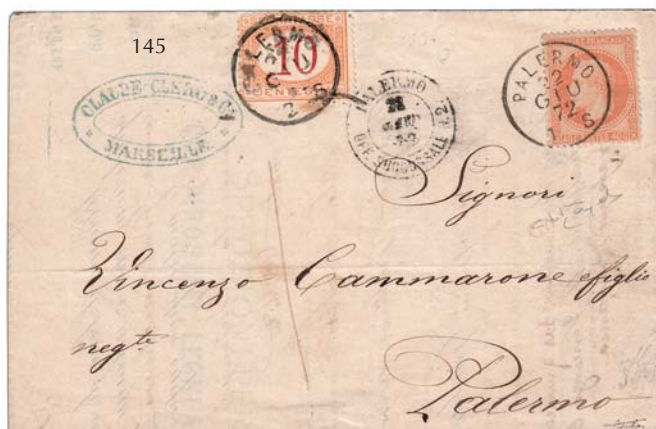 145
CLAUDE CLERC & Cie
MARSEILLE
PALERMO
10
CENTES
2 S
PALERMO
22
UFF. SUCCURSALE N. 2
PALERMO
22
GIU
72
1 S
Signori
Vincenzo Cammarone e figlio
negte
Palermo